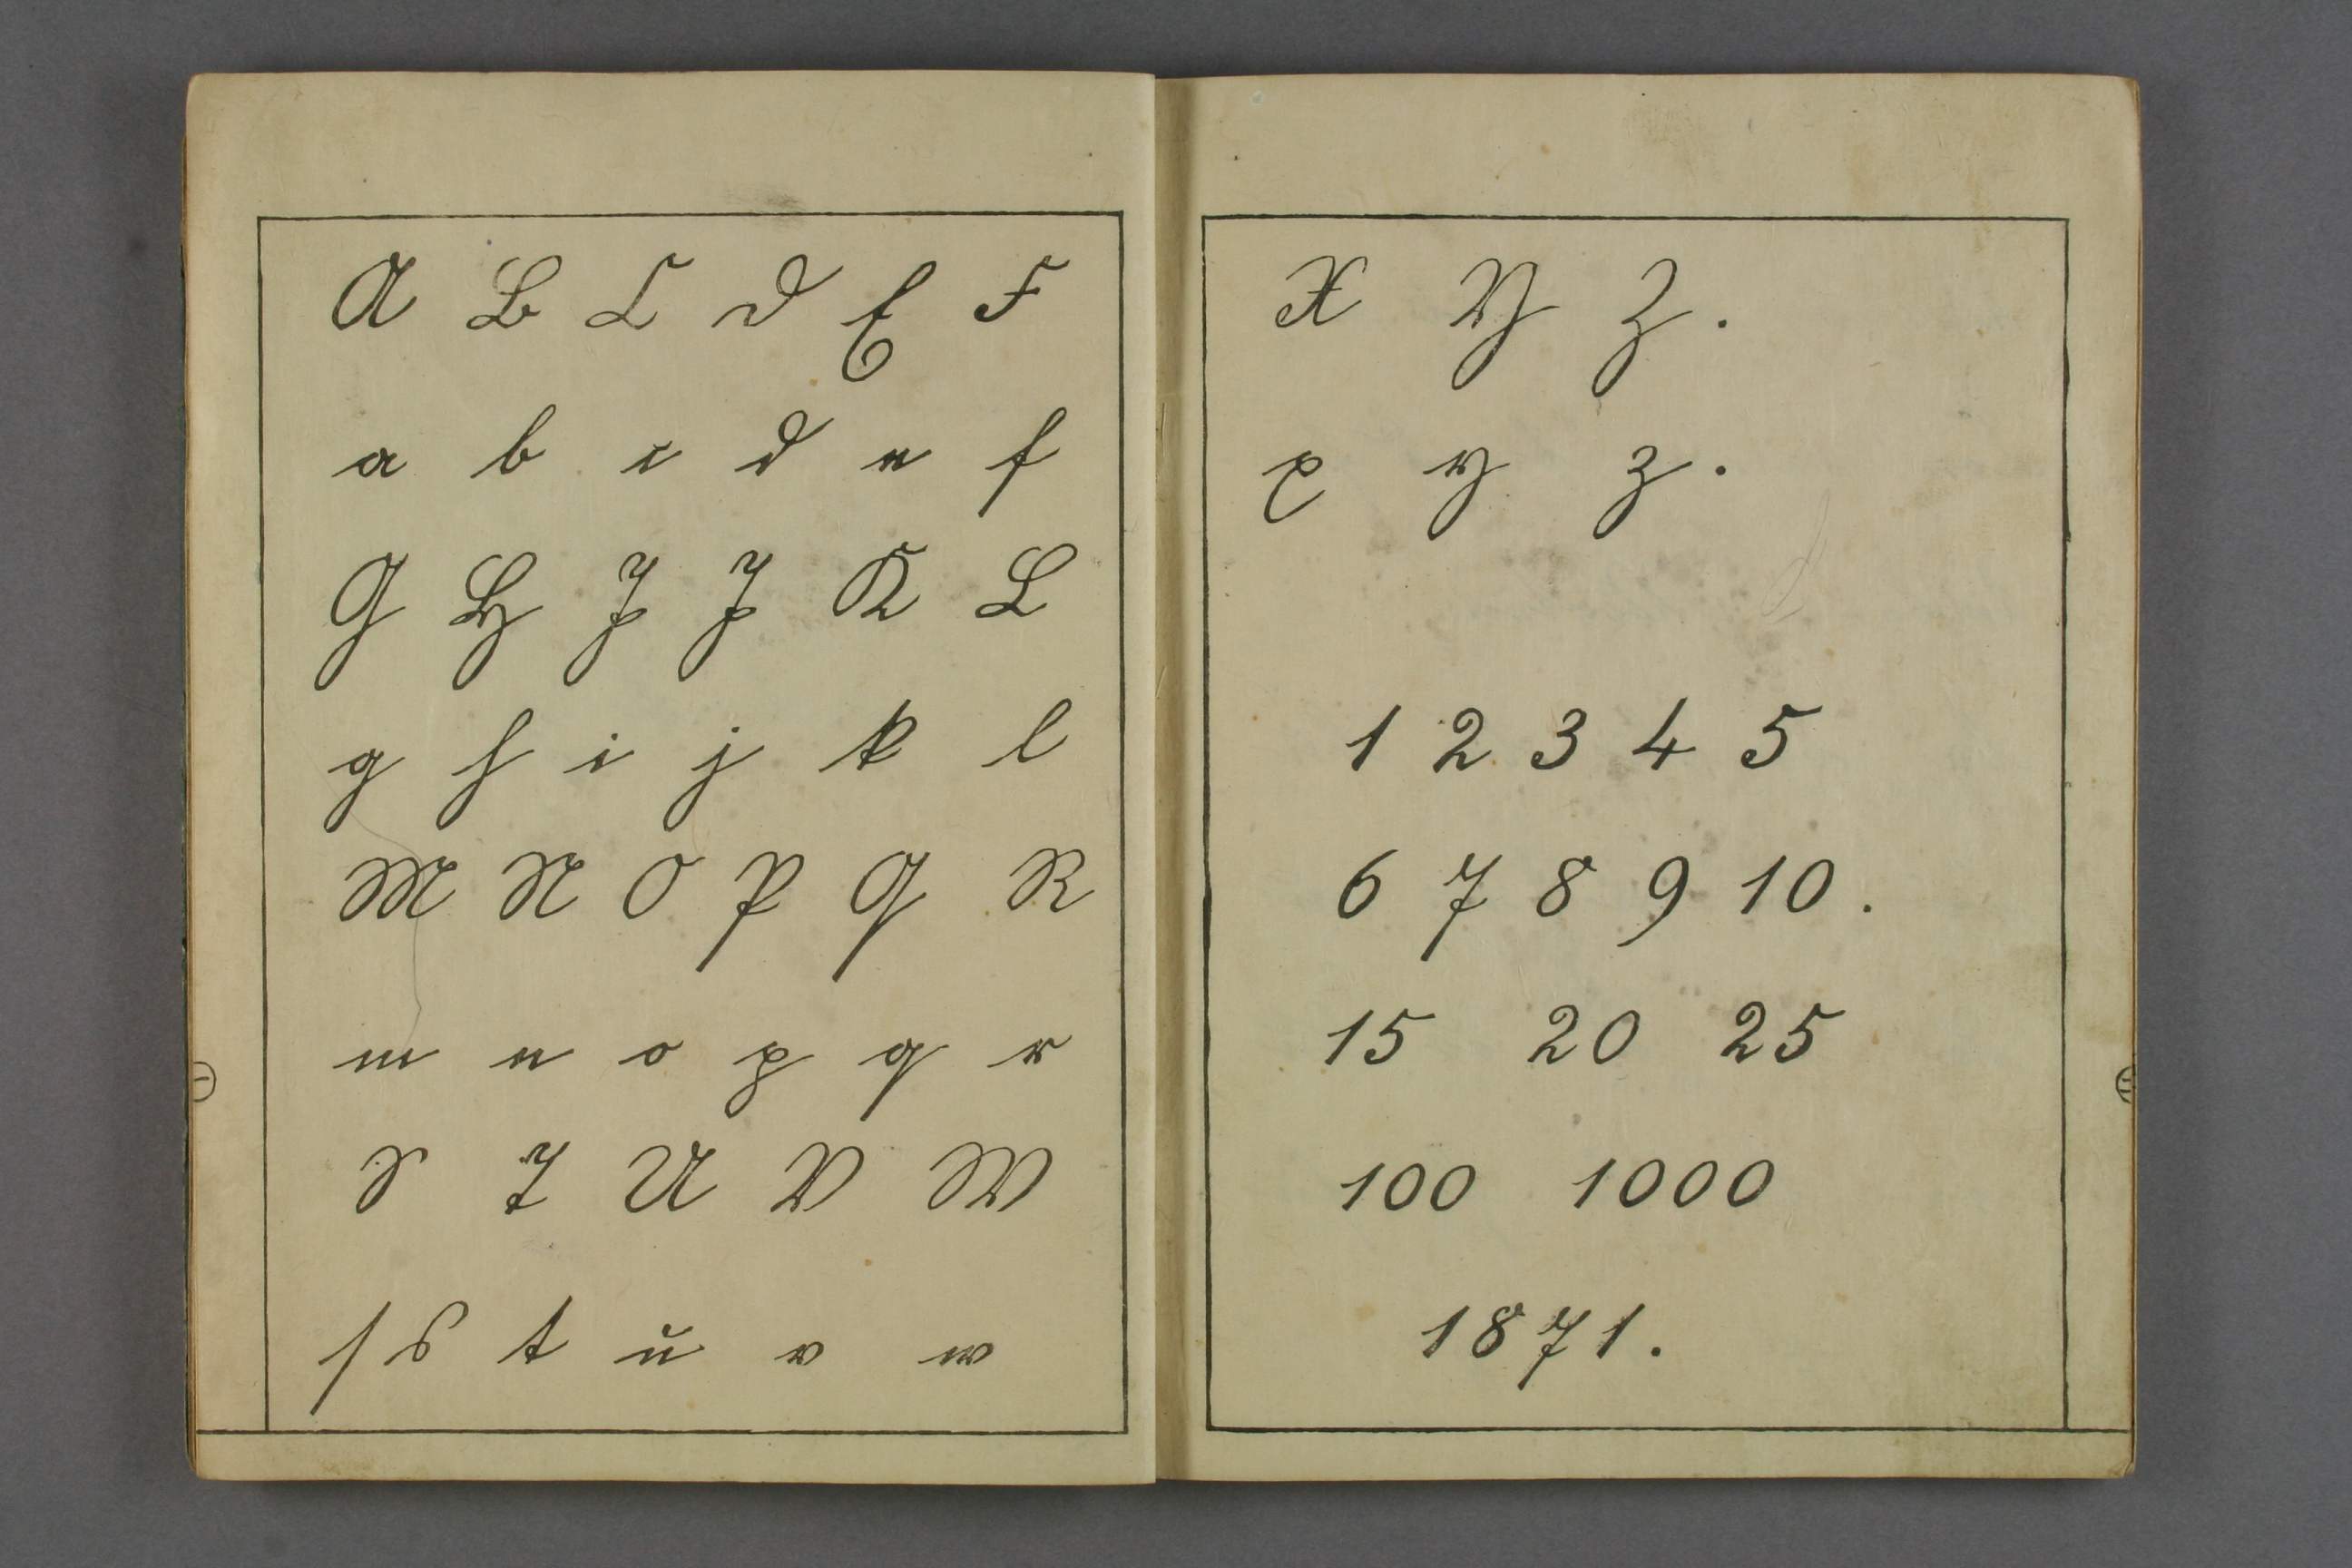 A B C D E F
a b c d e f
G H I J K L
g h i j k l
M N O P Q R
m n o p q r
S T U V W
ſ s t u v w
X Y Z.
x y z.
1 2 3 4 5
6 7 8 9 10.
15 20 25
100 1000
1871.